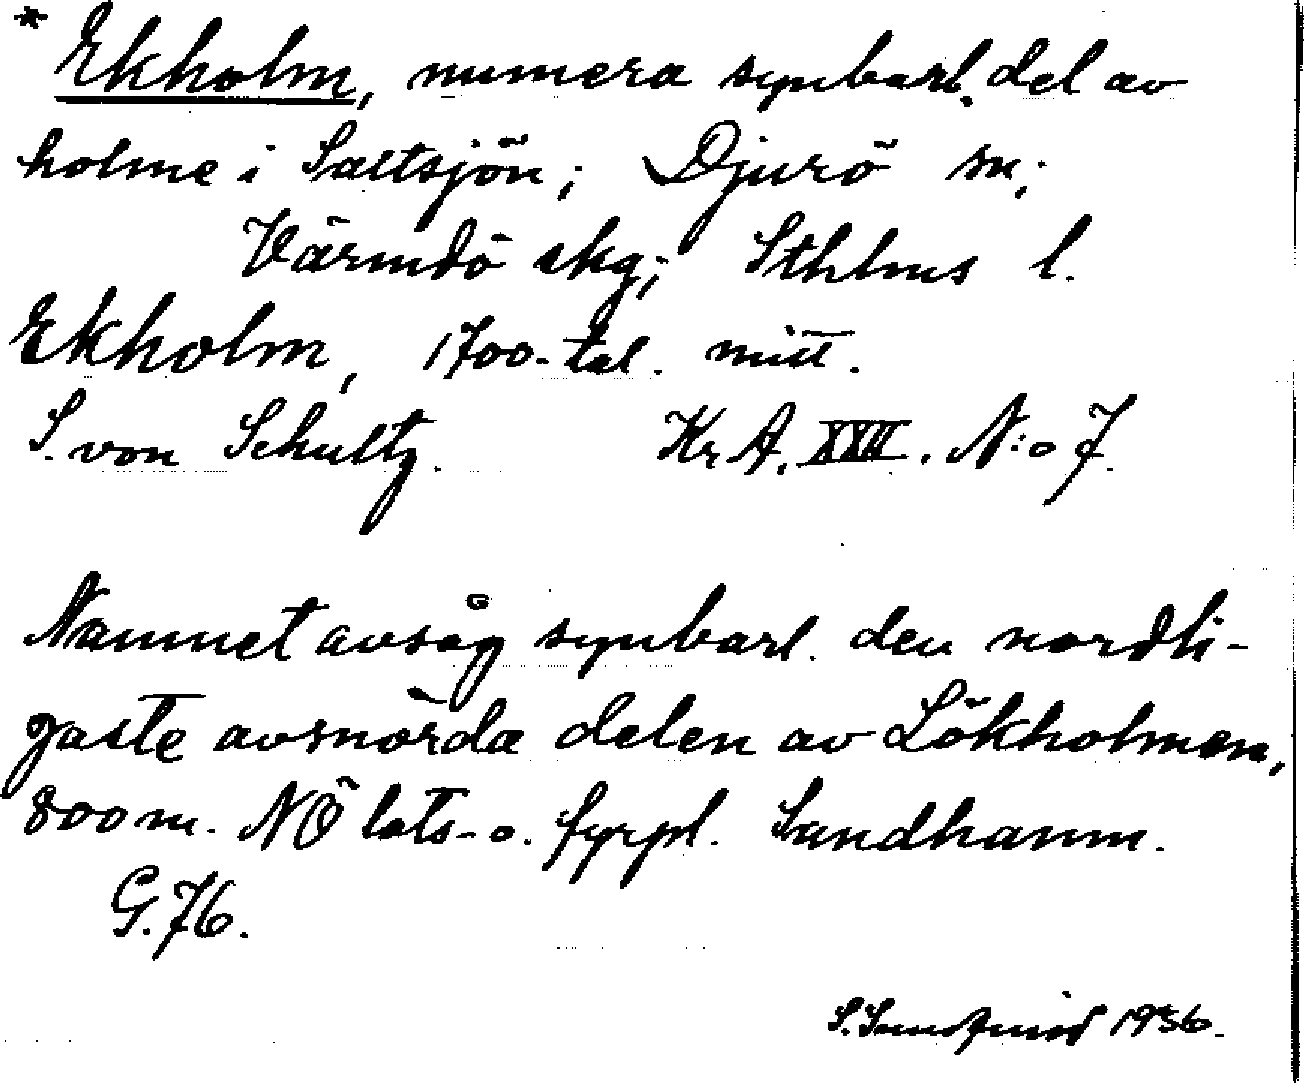 * Ekholm, numera synbarl. del av
holme i Saltsjön; Djurö sn;
Värmdö skg; Sthlms l.
Ekholm, 1700-tal. mitt.
S. von Schultz. Kr. A. XXII. N:o 7.
Namnet avsåg synbarl. den nordli-
gaste avsnörda delen av Lökholmen,
800 m. NÖ lots- o. fyrpl. Sandhamn.
G. 76.
S. Sundquist 1936.